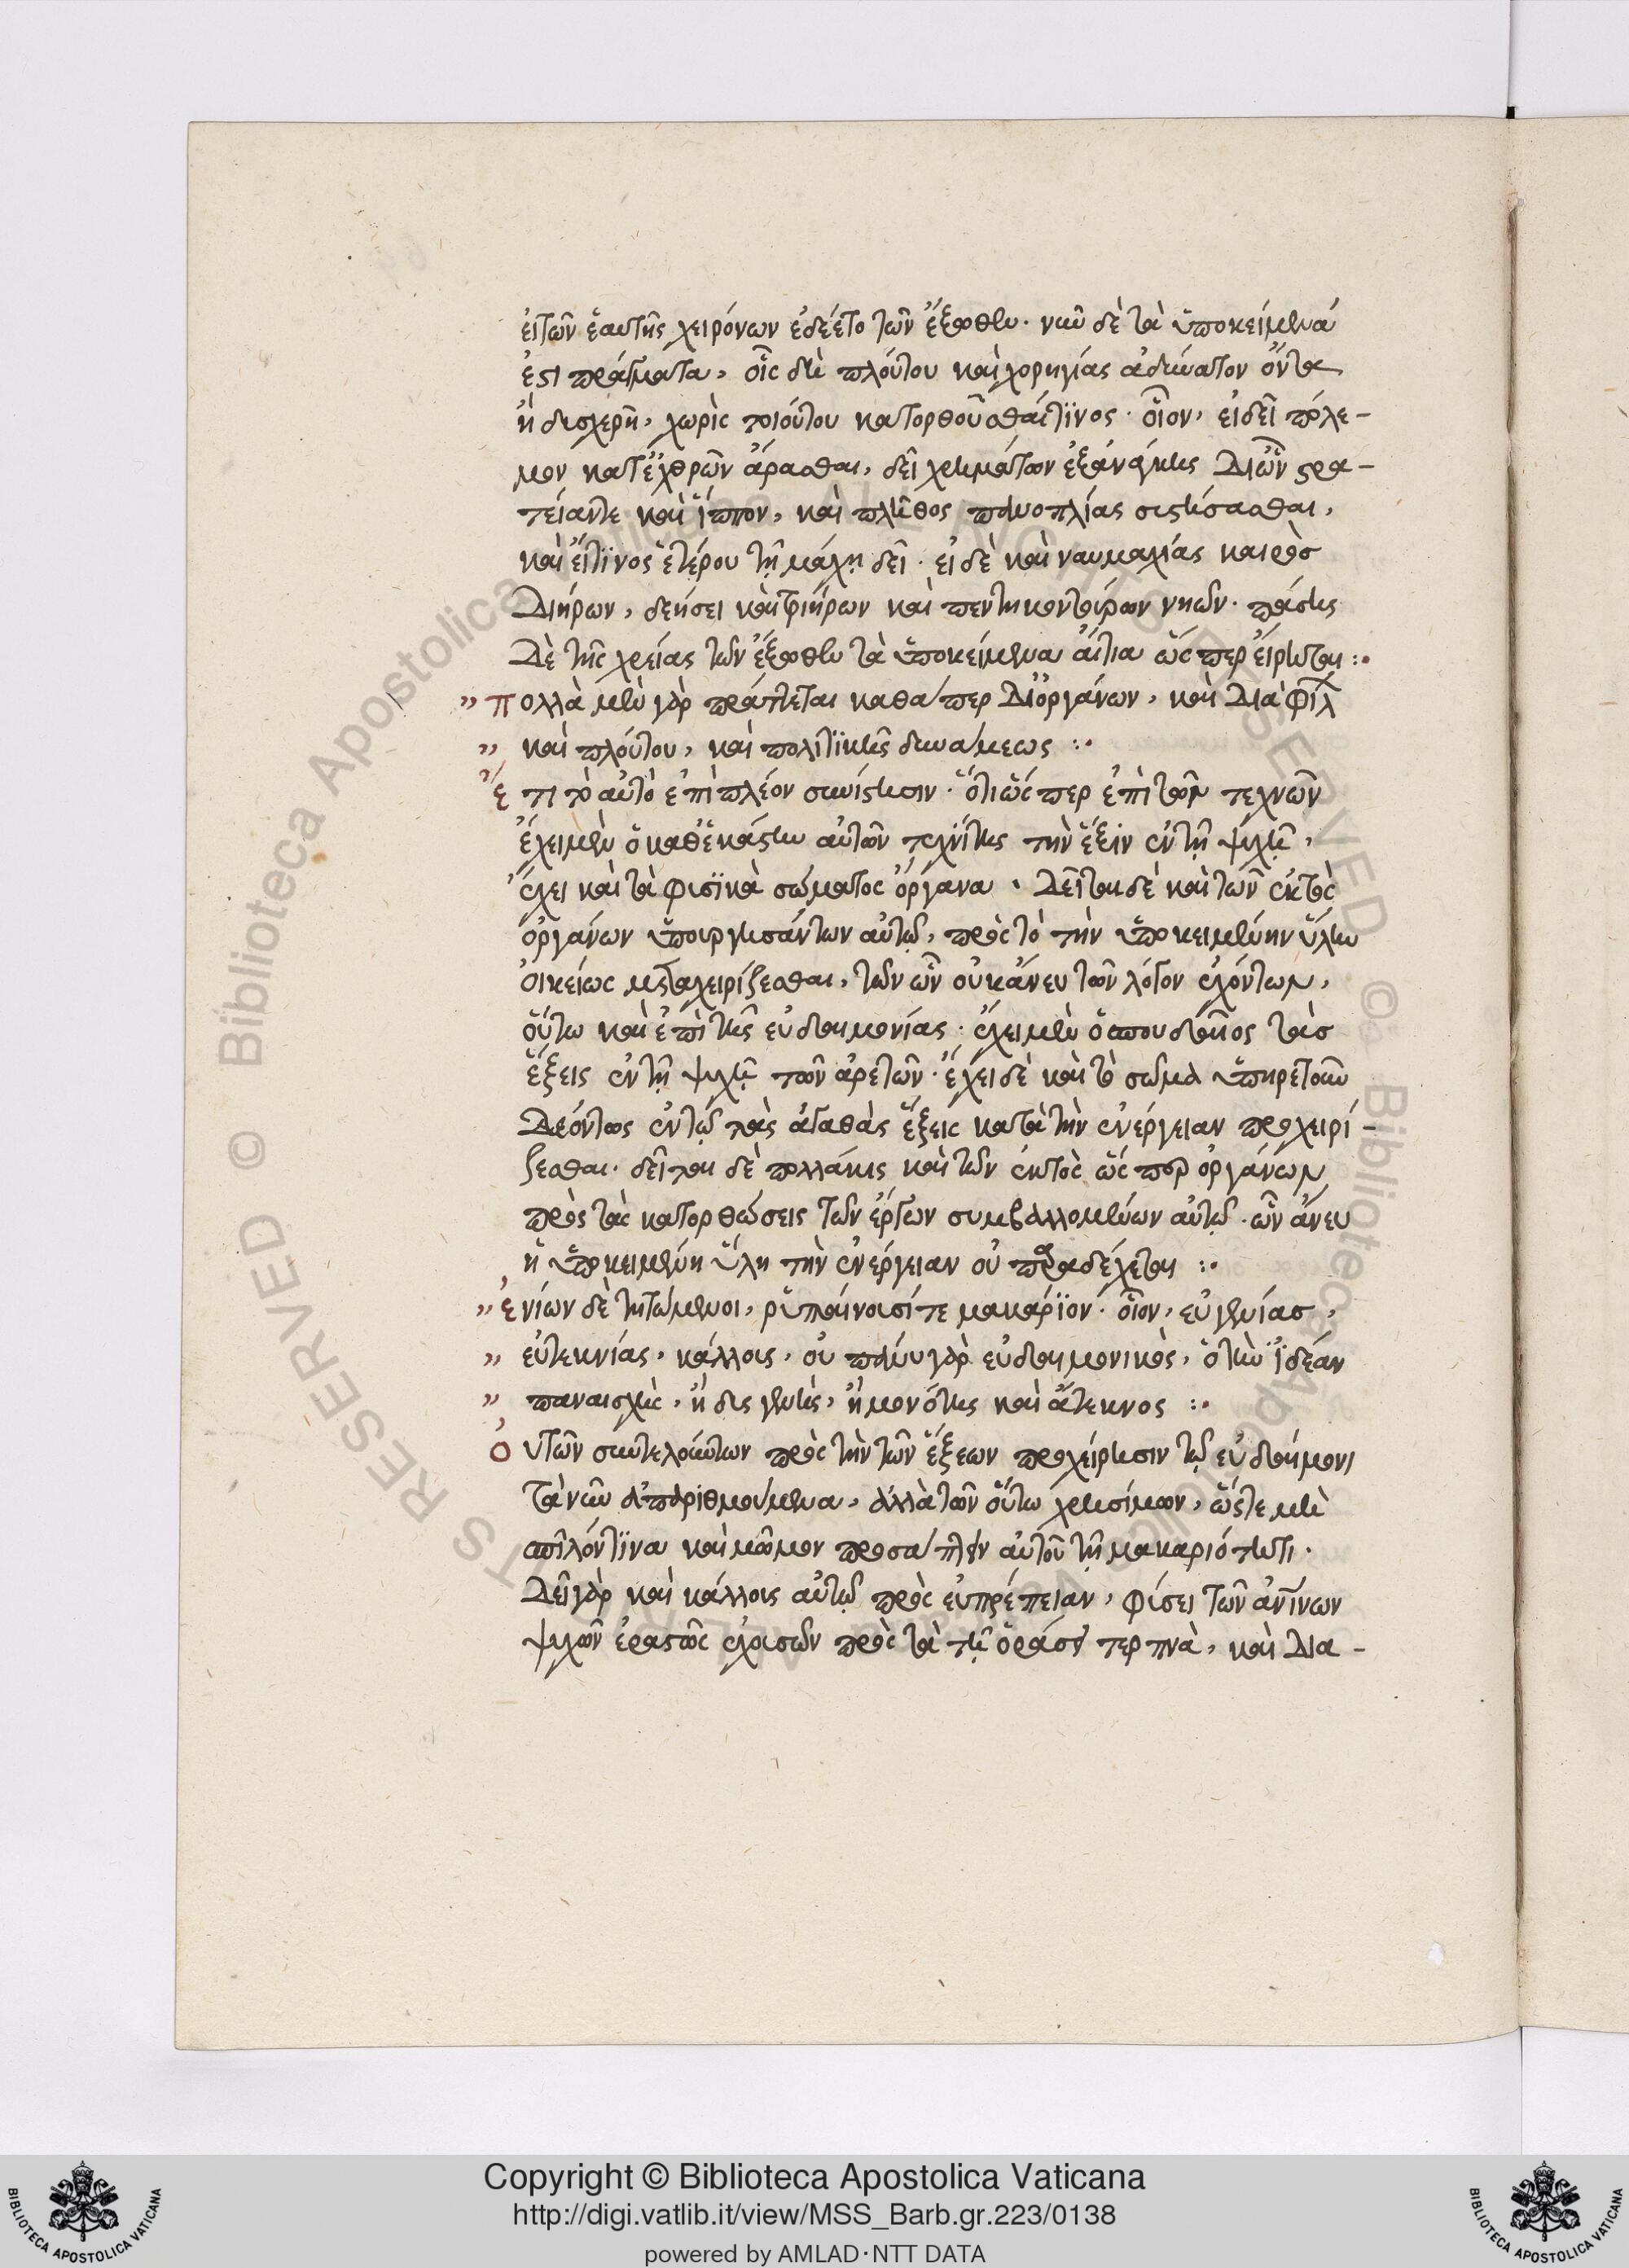 εἰ τῶν ἑαυτῆς χειρόνων ἐδέετο τῶν ἔξωθεν. νῦν δὲ τὰ ὑποκείμενά
ἐστι πράγματα, οἷς δὴ πλούτου καὶ χορηγίας ἀδύνατον ὄντα
ἢ δυσχερῆ, χωρὶς τοιούτου κατορθοῦσθαί τινος. οἷον, εἰ δεῖ πόλε-
μον κατ' ἐχθρῶν ἄρασθαι, δεῖ χρημάτων ἐξανάγκης δι' ὧν στρα-
τείαν τε καὶ ἵππον, καὶ πλῆθος πανοπλίας συστήσασθαι,
καὶ εἴ τινος ἑτέρου τῇ μάχῃ δεῖ. εἰ δὲ καὶ ναυμαχίας καιρὸσ
διήρων, δεήσει καὶ τριήρων καὶ πεντηκοντόρων νηῶν. πάσης
δὲ τῆς χρείας τῶν ἔξωθεν τὰ ὑποκείμενα αἴτια ὥς περ εἴρηται :
" πολλὰ μὲν γὰρ πράττεται καθάπερ δι' ὀργάνων, καὶ διὰ φίλ
" καὶ πλούτου, καὶ πολιτικῆς δυνάμεως :
ἔτι τὸ αὐτὸ ἐπὶ πλέον συνίστησιν. ὅτι ὥς περ ἐπὶ τῶν τεχνῶν
ἔχει μὲν ὁ καθ' ἑκάστην αὐτῶν τεχνίτης τὴν ἕξιν ἐν τῇ ψυχῇ,
ἔχει καὶ τὰ φυσικὰ σώματος ὄργανα. δεῖται δὲ καὶ τῶν ἐκτὸς
ὀργάνων ὑπουργησάντων αὐτῷ, πρὸς τὸ τὴν ὑποκειμένην ὕλην
οἰκείως μεταχειρίζεσθαι, τῶν ὧν οὐκ ἄνευ τῶν λόγον ἐχόντων,
οὕτω καὶ ἐπὶ τῆς εὐδαιμονίας. ἔχει μὲν ὁ σπουδαῖος τὰσ
ἕξεις ἐν τῇ ψυχῇ τῶν ἀρετῶν. ἔχει δὲ καὶ τὸ σῶμα ὑπηρετοῦν
δεόντως ἐν τῷ τὰς ἀγαθὰς ἕξεις κατὰ τὴν ἐνέργειαν προχειρί-
ζεσθαι. δεῖται δὲ πολλάκις καὶ τῶν ἐκτὸς ὥς περ ὀργάνων
πρὸς τὰς κατορθώσεις τῶν ἔργων συμβαλλομένων αὐτῷ. ὧν ἄνευ
ἡ ὑποκειμένη ὕλη τὴν ἐνέργειαν οὐ προσδέχεται :
" ἐνίων δὲ τητώμενοι, ῥυπαίνουσί τε μακάριον. οἷον, εὐγενίασ,
" εὐτεκνίας, κάλλους, οὐ πάνυ γὰρ εὐδαιμονικὸς, ὁ τὴν ἰδέαν
" παναισχὴς, ἢ δυσγενὴς, ἢ μονότης καὶ ἄτεκνος :
οὐ τῶν συντελούντων πρὸς τὴν τῶν ἕξεων προχείρησιν τῷ εὐδαίμονι
τὰ νῦν ἀπαριθμούμενα, ἀλλὰ τῶν οὕτω χρησίμων, ὥστε μὴ
ἀπελθόντινα καὶ μῶμον προσάπτειν αὐτοῦ τῇ μακαριότητι.
δεῖ γὰρ καὶ κάλλους αὐτῷ πρὸς εὐπρέπειαν, φύσει τῶν ἀνθρωπίνων
ψυχῶν ἐραστῶς ἐχουσῶν πρὸς τὰ τῇ ὁράσει τερπνὰ, καὶ δια-
Copyright © Biblioteca Apostolica Vaticana
http://digi.vatlib.it/view/MSS_Barb.gr.223/0138
powered by AMLAD·NTT DATA